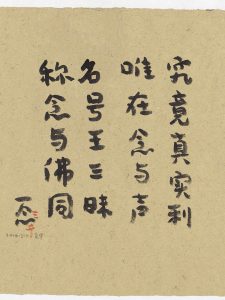 究竟真实利
唯在念与声
名号王三昧
称念与佛同